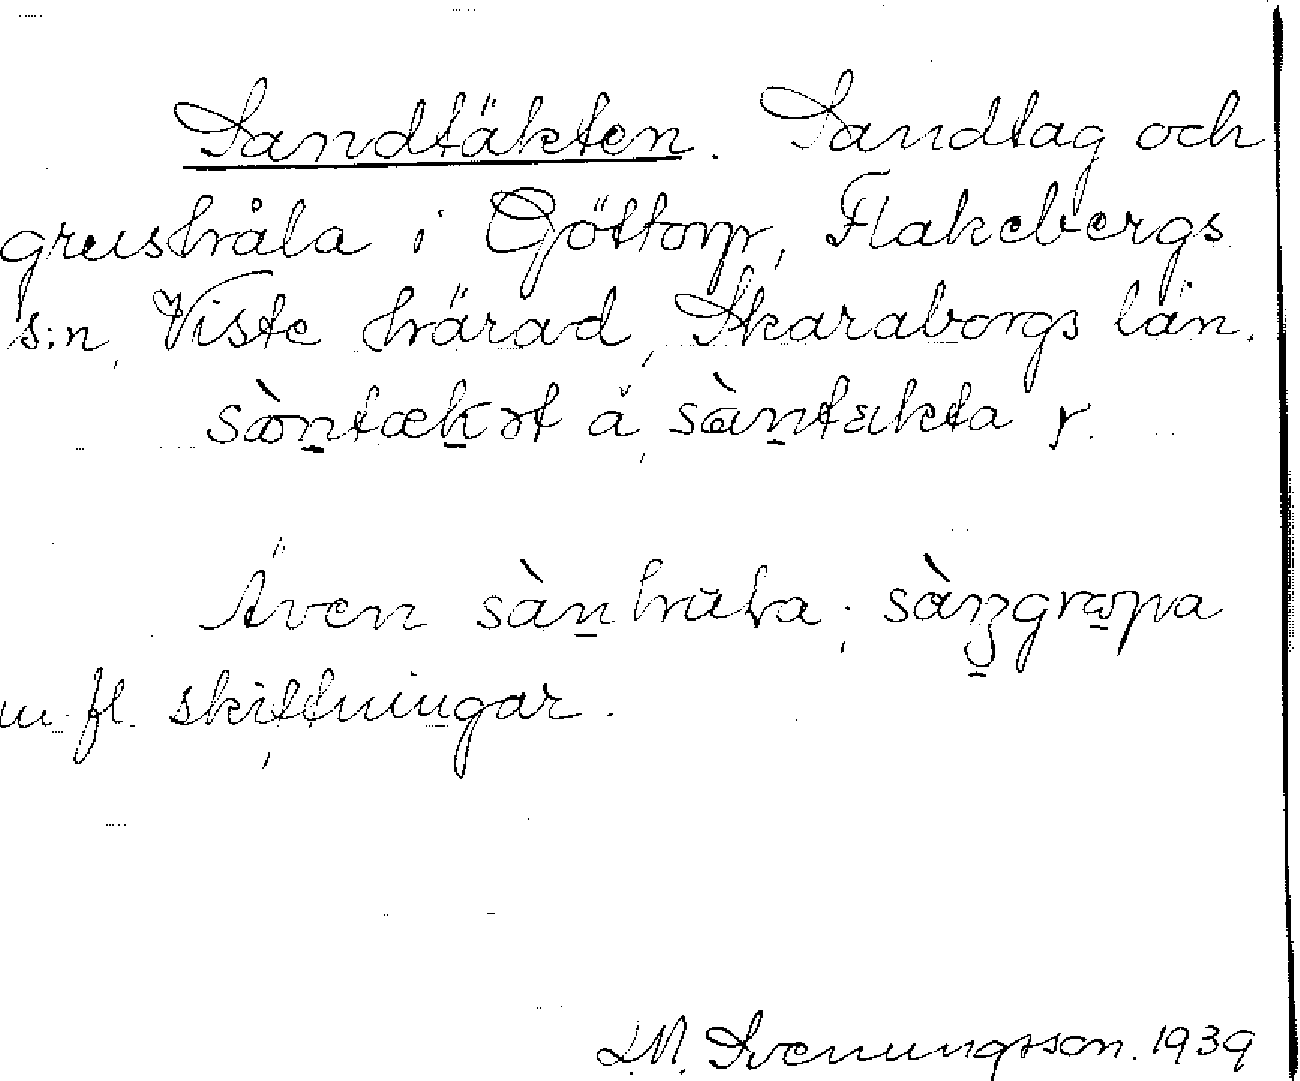 Sandtäkten. Sandtag och
grushåla i Göttorp, Flakebergs
s:n, Viste härad, Skaraborgs län.
sàntækət å, sàntækta r.
Även sànhåla; sàŋgropa
m. fl. skiftningar.
S.M. Svenungsson. 1939